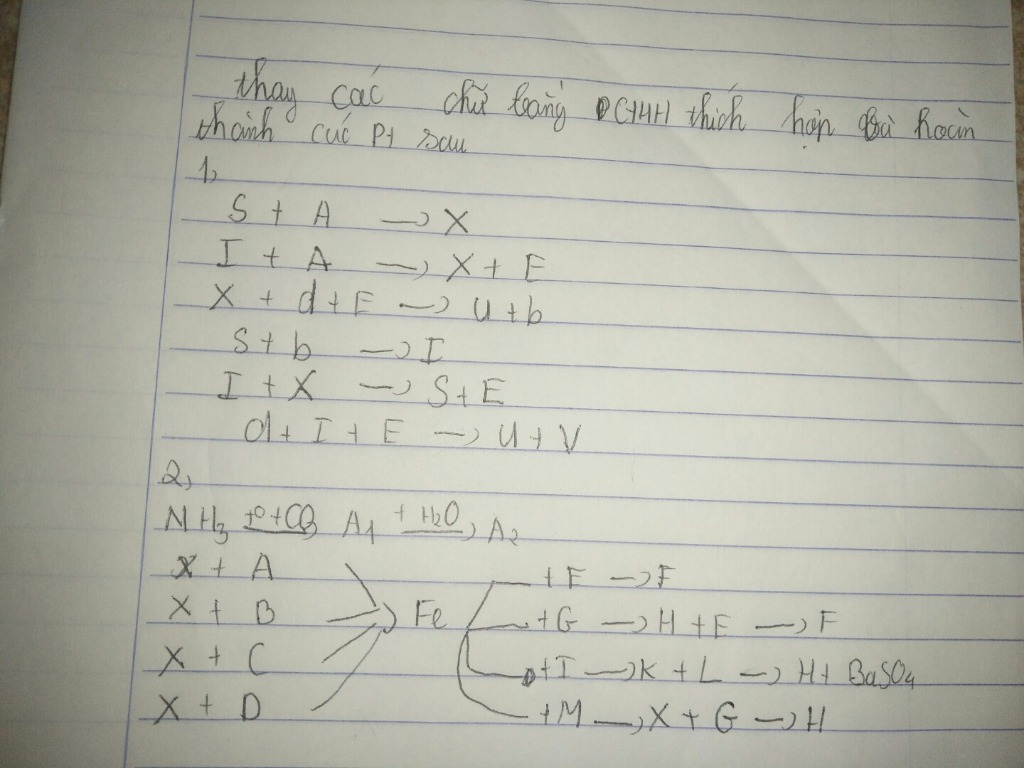 thay các chữ bằng CTHH thích hợp và hoàn
thành các Pt sau
1,
S + A → X
I + A → X + E
X + d + E → U + b
S + b → I
I + X → S + E
d + I + E → U + V
2,
NH3 t° + CO2 → A1 + H2O → A2
X + A
X + B
X + C
X + D
Fe
+ E → F
+ G → H + E → F
+ I → K + L → H + BaSO4
+ M → X + G → H